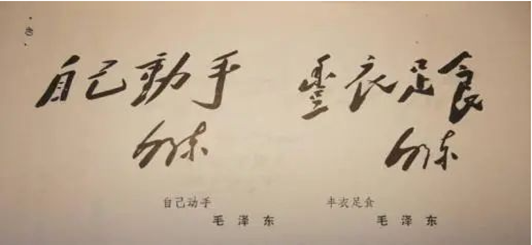 自己動手
毛泽东
豐衣足食
毛泽东
自己动手
毛泽东
丰衣足食
毛泽东